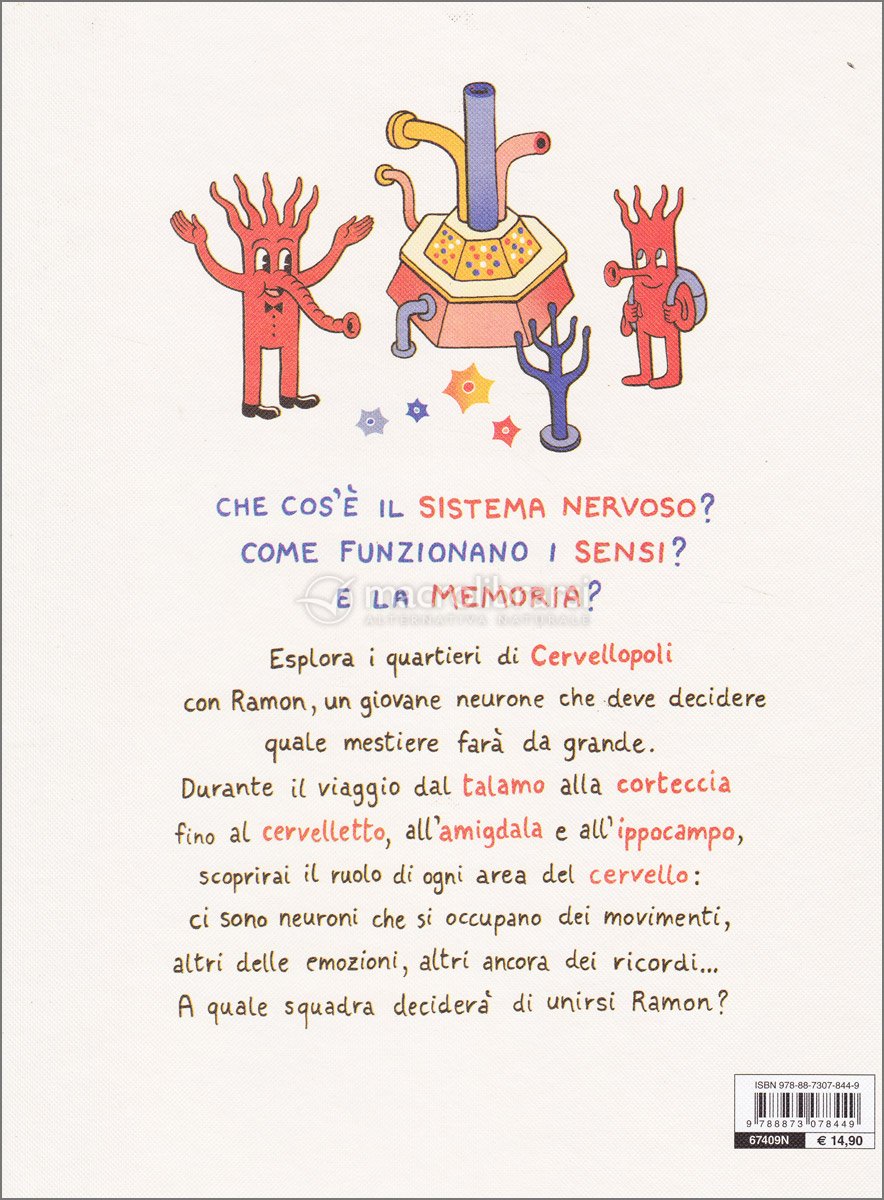 CHE COS'È IL SISTEMA NERVOSO?
COME FUNZIONANO I SENSI?
E LA MEMORIA?
macrolibrarsi
ALTERNATIVA NATURALE
Esplora i quartieri di Cervellopoli
con Ramon, un giovane neurone che deve decidere
quale mestiere farà da grande.
Durante il viaggio dal talamo alla corteccia
fino al cervelletto, all'amigdala e all'ippocampo,
scoprirai il ruolo di ogni area del cervello:
ci sono neuroni che si occupano dei movimenti,
altri delle emozioni, altri ancora dei ricordi...
A quale squadra deciderà di unirsi Ramon?
ISBN 978-88-7307-844-9
9 788873 078449
67409N € 14,90